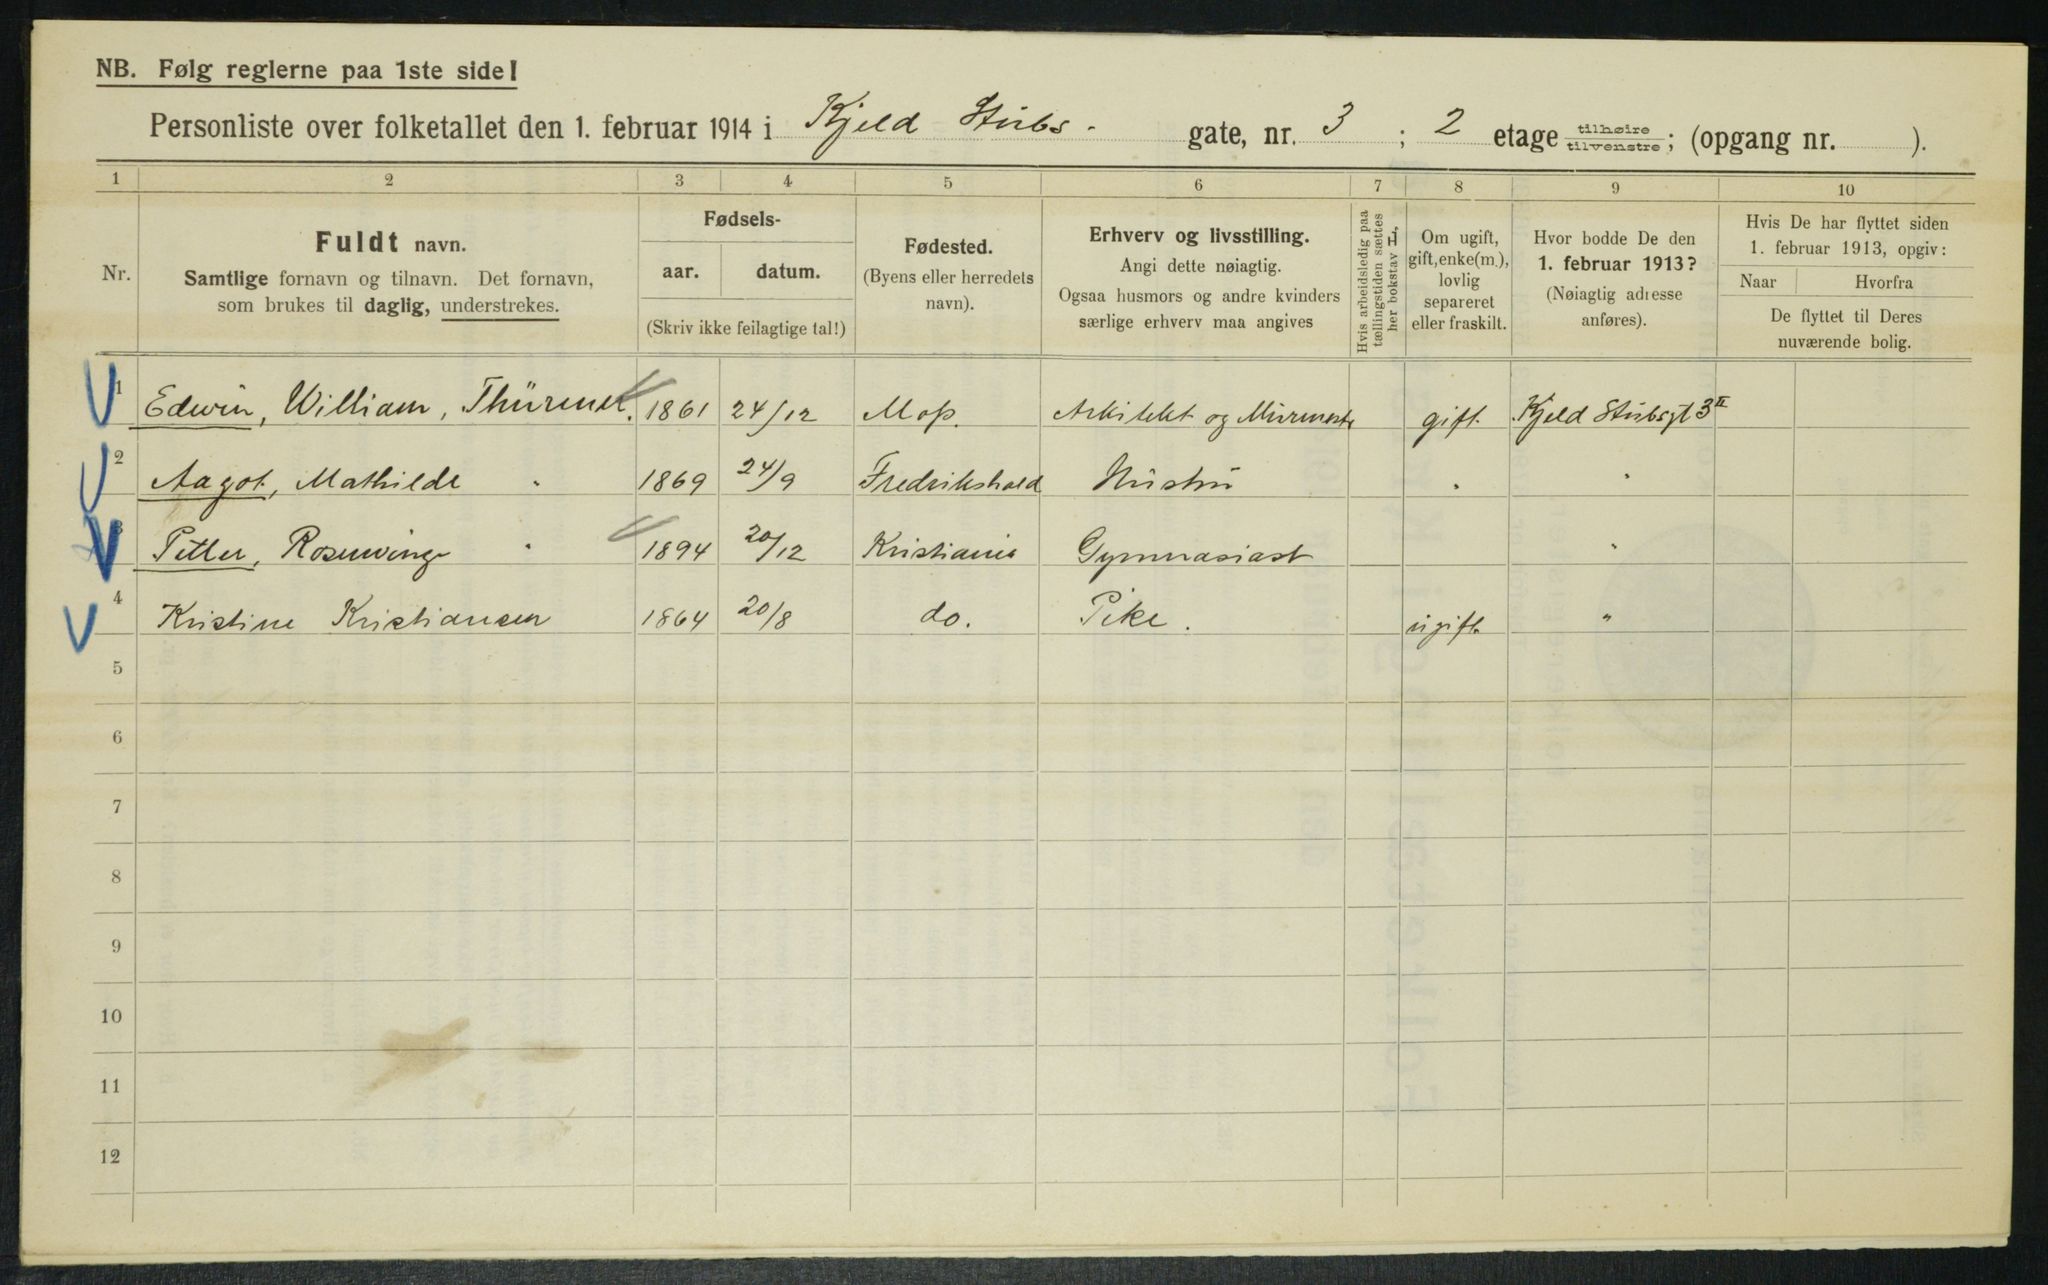 NB. Følg reglerne paa 1ste side!
Personliste over folketallet den 1. februar 1914 i Kjeld Stubs. gate, nr. 3 ; 2 etage tilhøire tilvenstre; (opgang nr. ).
1 2 3 4 5 6 7 8 9 10
Nr.
Fuldt navn.
Samtlige fornavn og tilnavn. Det fornavn,
som brukes til daglig, understrekes.
Fødsels-
aar. datum.
(Skriv ikke feilagtige tal!)
Fødested.
(Byens eller herredets
navn).
Erhverv og livsstilling.
Angi dette nøiagtig.
Ogsaa husmors og andre kvinders
særlige erhverv maa angives
Hvis arbeidsledig paa
tællingstiden sættes
her bokstav L.
Om ugift,
gift, enke(m.),
lovlig
separeret
eller fraskilt.
Hvor bodde De den
1. februar 1913?
(Nøiagtig adresse
anføres).
Hvis De har flyttet siden
1. februar 1913, opgiv:
Naar Hvorfra
De flyttet til Deres
nuværende bolig.
1 Edwin, William, Thürmer. 1861 24/12 Moss. Arkitekt og Murmestr gift. Kjeld Stubsgt 3 II
2 Aagot, Mathilde " 1869 24/9 Fredrikshald Hustru " "
3 Petter, Rosenvinge " 1894 20/12 Kristiania Gymnasiast "
4 Kristine Kristiansen 1864 20/8 do. Pike. ugift. "
5
6
7
8
9
10
11
12